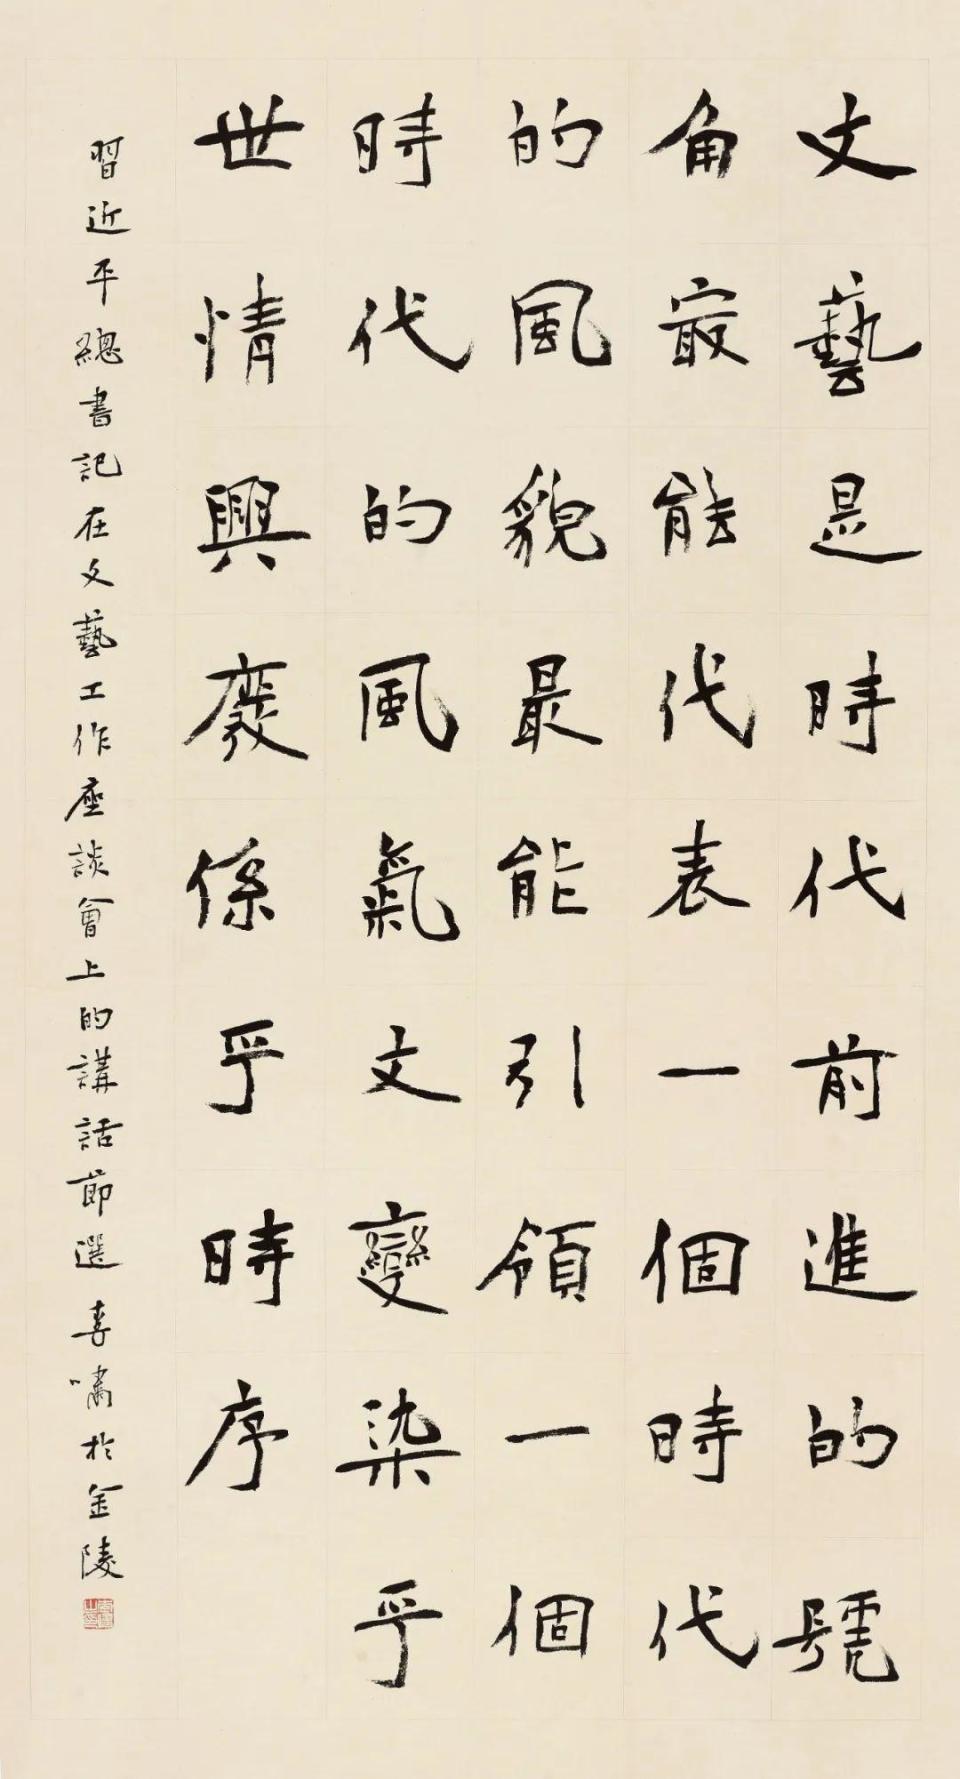 文藝是時代前進的號
角最能代表一個時代
的風貌最能引領一個
時代的風氣文變染乎
世情興廢係乎時序
習近平總書記在文藝工作座談會上的講話節選 李嘯於金陵